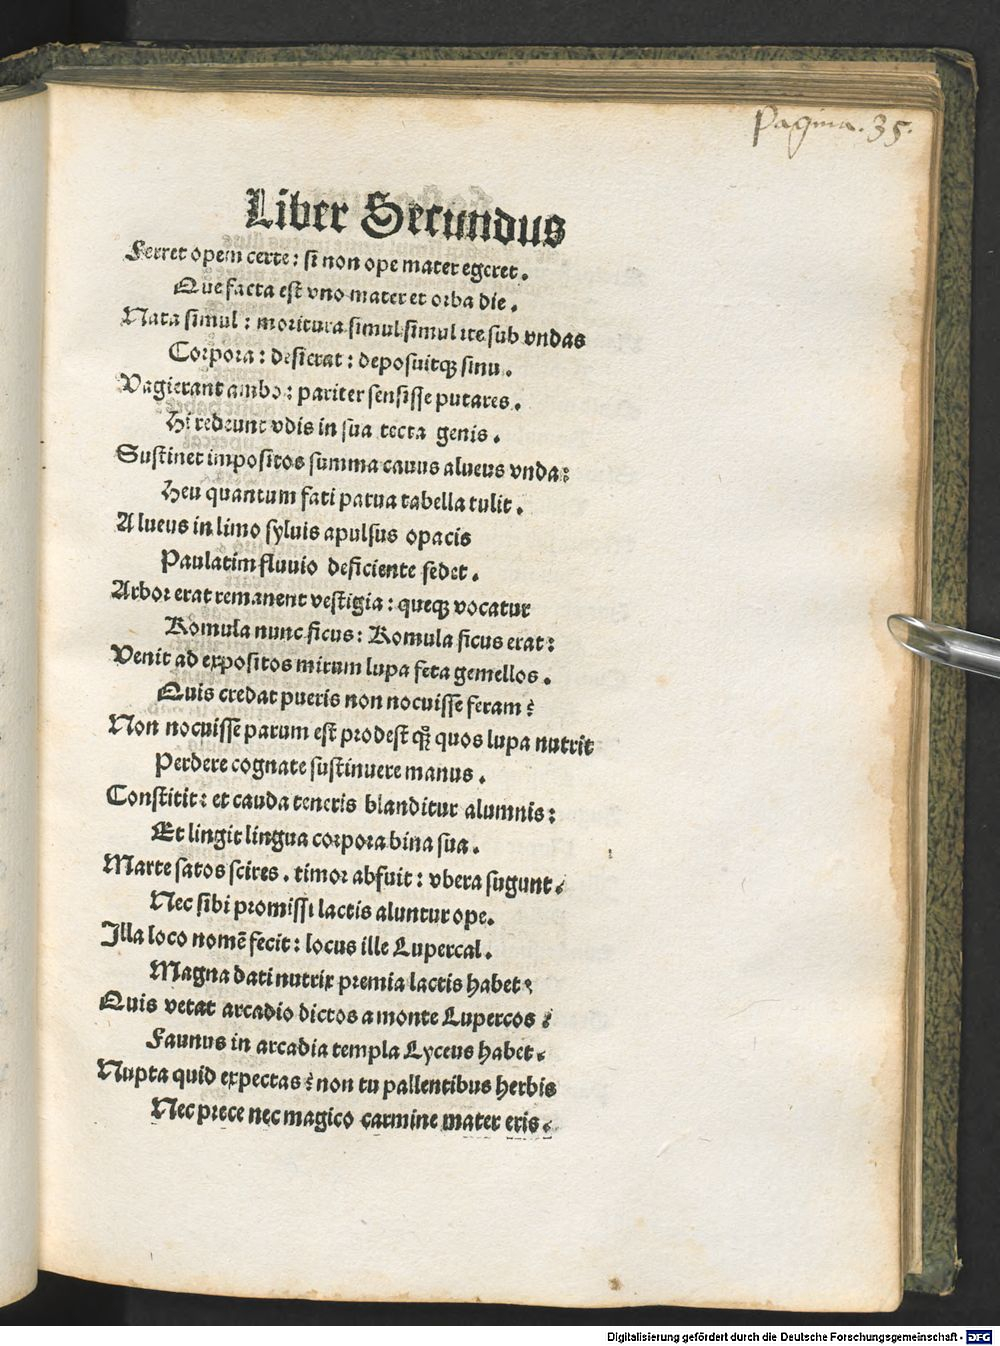 Pagina. 35.
Liber Secundus
Ferret opem certe: si non ope mater egeret.
Que facta est vno mater et orba die.
Nata simul: moritura simul simul ite sub vndas
Corpora: desierat: deposuitqʒ sinu.
Vagierant ambo: pariter sensisse putares.
Hi redeunt vdis in sua tecta genis.
Sustinet impositos summa cauus alueus vnda:
Heu quantum fati parua tabella tulit.
Alueus in limo syluis apulsus opacis
Paulatim fluuio deficiente sedet.
Arbor erat remanent vestigia: queqʒ vocatur
Romula nunc ficus: Romula ficus erat:
Venit ad expositos mirum lupa feta gemellos.
Quis credat pueris non nocuisse feram?
Non nocuisse parum est prodest qʒ quos lupa nutrit
Perdere cognate sustinuere manus.
Constitit: et cauda teneris blanditur alumnis:
Et lingit lingua corpora bina sua.
Marte satos scires. timor abfuit: vbera sugunt.
Nec sibi promissi lactis aluntur ope.
Illa loco nomē fecit: locus ille Lupercal.
Magna dati nutrix premia lactis habet?
Quis vetat arcadio dictos a monte Lupercos?
Faunus in arcadia templa Lyceus habet.
Nupta quid expectas? non tu pallentibus herbis
Nec prece nec magico carmine mater eris.
Digitalisierung gefördert durch die Deutsche Forschungsgemeinschaft - DFG